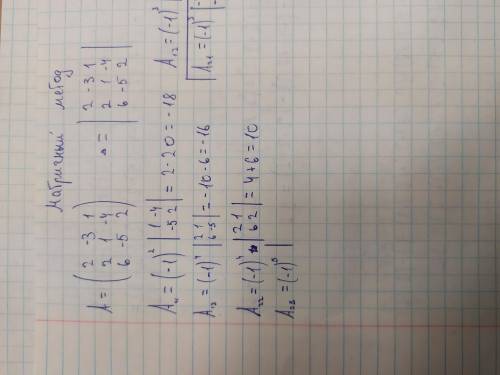 Матричный метод
A = ( 2 -3 1
2 1 -4
6 -5 2 )
Δ = | 2 -3 1
2 1 -4
6 -5 2 |
A₁₁ = (-1)² | 1 -4
-5 2 | = 2-20 = -18
A₁₂ = (-1)³ |
A₁₃ = (-1)⁴ | 2 1
6 -5 | = -10-6 = -16
A₂₁ = (-1)³
A₂₂ = (-1)⁴ | 2 1
6 2 | = 4+6 = 10
A₂₃ = (-1)⁵ |